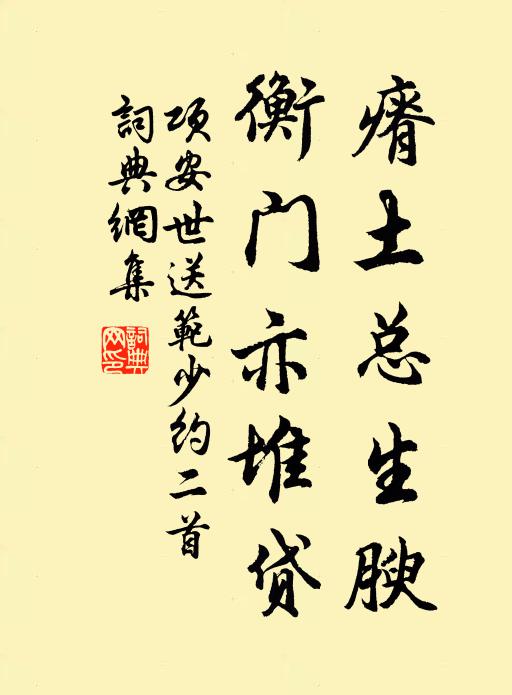 瘠土总生腴
衡门亦堆贷
项安世送範少约二首
詞典網集
詞典
网印